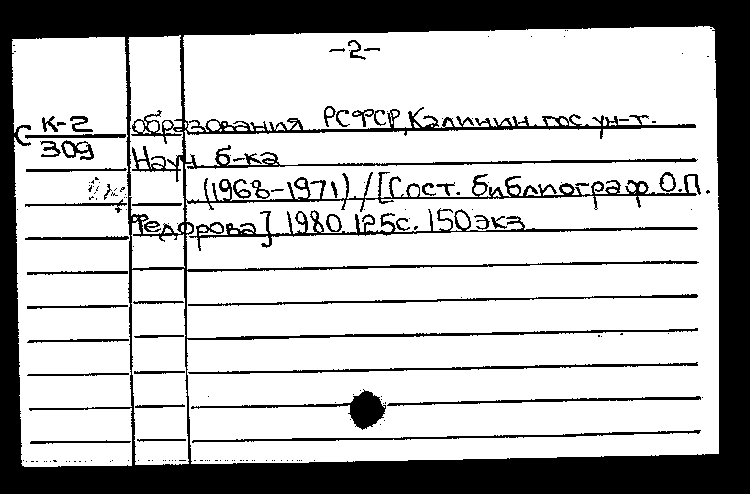 -2-
С К-2 образования РСФСР, Калинин. гос. ун-т.
309 Науч. б-ка
(1968-1971). / [Сост. библиограф. О.П.
Федорова] 1980. 125с. 150экз